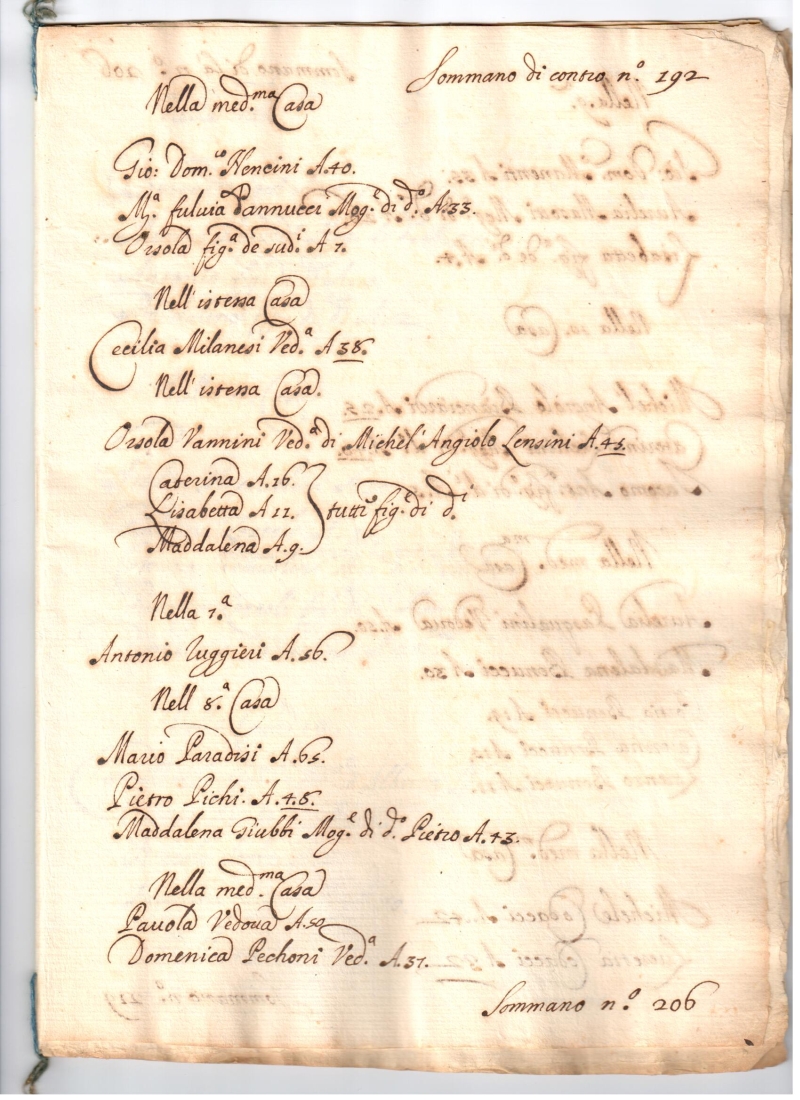 Sommano di contro n.º 192
Nella med.ma Casa
Gio: Dom.co Nencini A.40.
M.ª fulvia Pannucci Mog.e di d.º A.33.
Orsola fig.ª de sud.i A 7.
Nell' istessa Casa
Cecilia Milanesi Ved.ª A 38.
Nell' istessa Casa.
Orsola Vannini Ved.ª di Michel' Angiolo Lensini A.45.
Caterina A.16.
Lisabetta A 11. } tutti fig.e di d.i
Maddalena A.9.
Nella 7.ª
Antonio Ruggieri A.56.
Nell 8.ª Casa
Mario Paradisi A.65.
Pietro Pichi. A.48.
Maddalena Giubbi Mog.e di d.º Pietro A.43.
Nella med.ma Casa
Pauola Vedova A.50
Domenica Pechoni Ved.ª A.37.
Sommano n.º 206